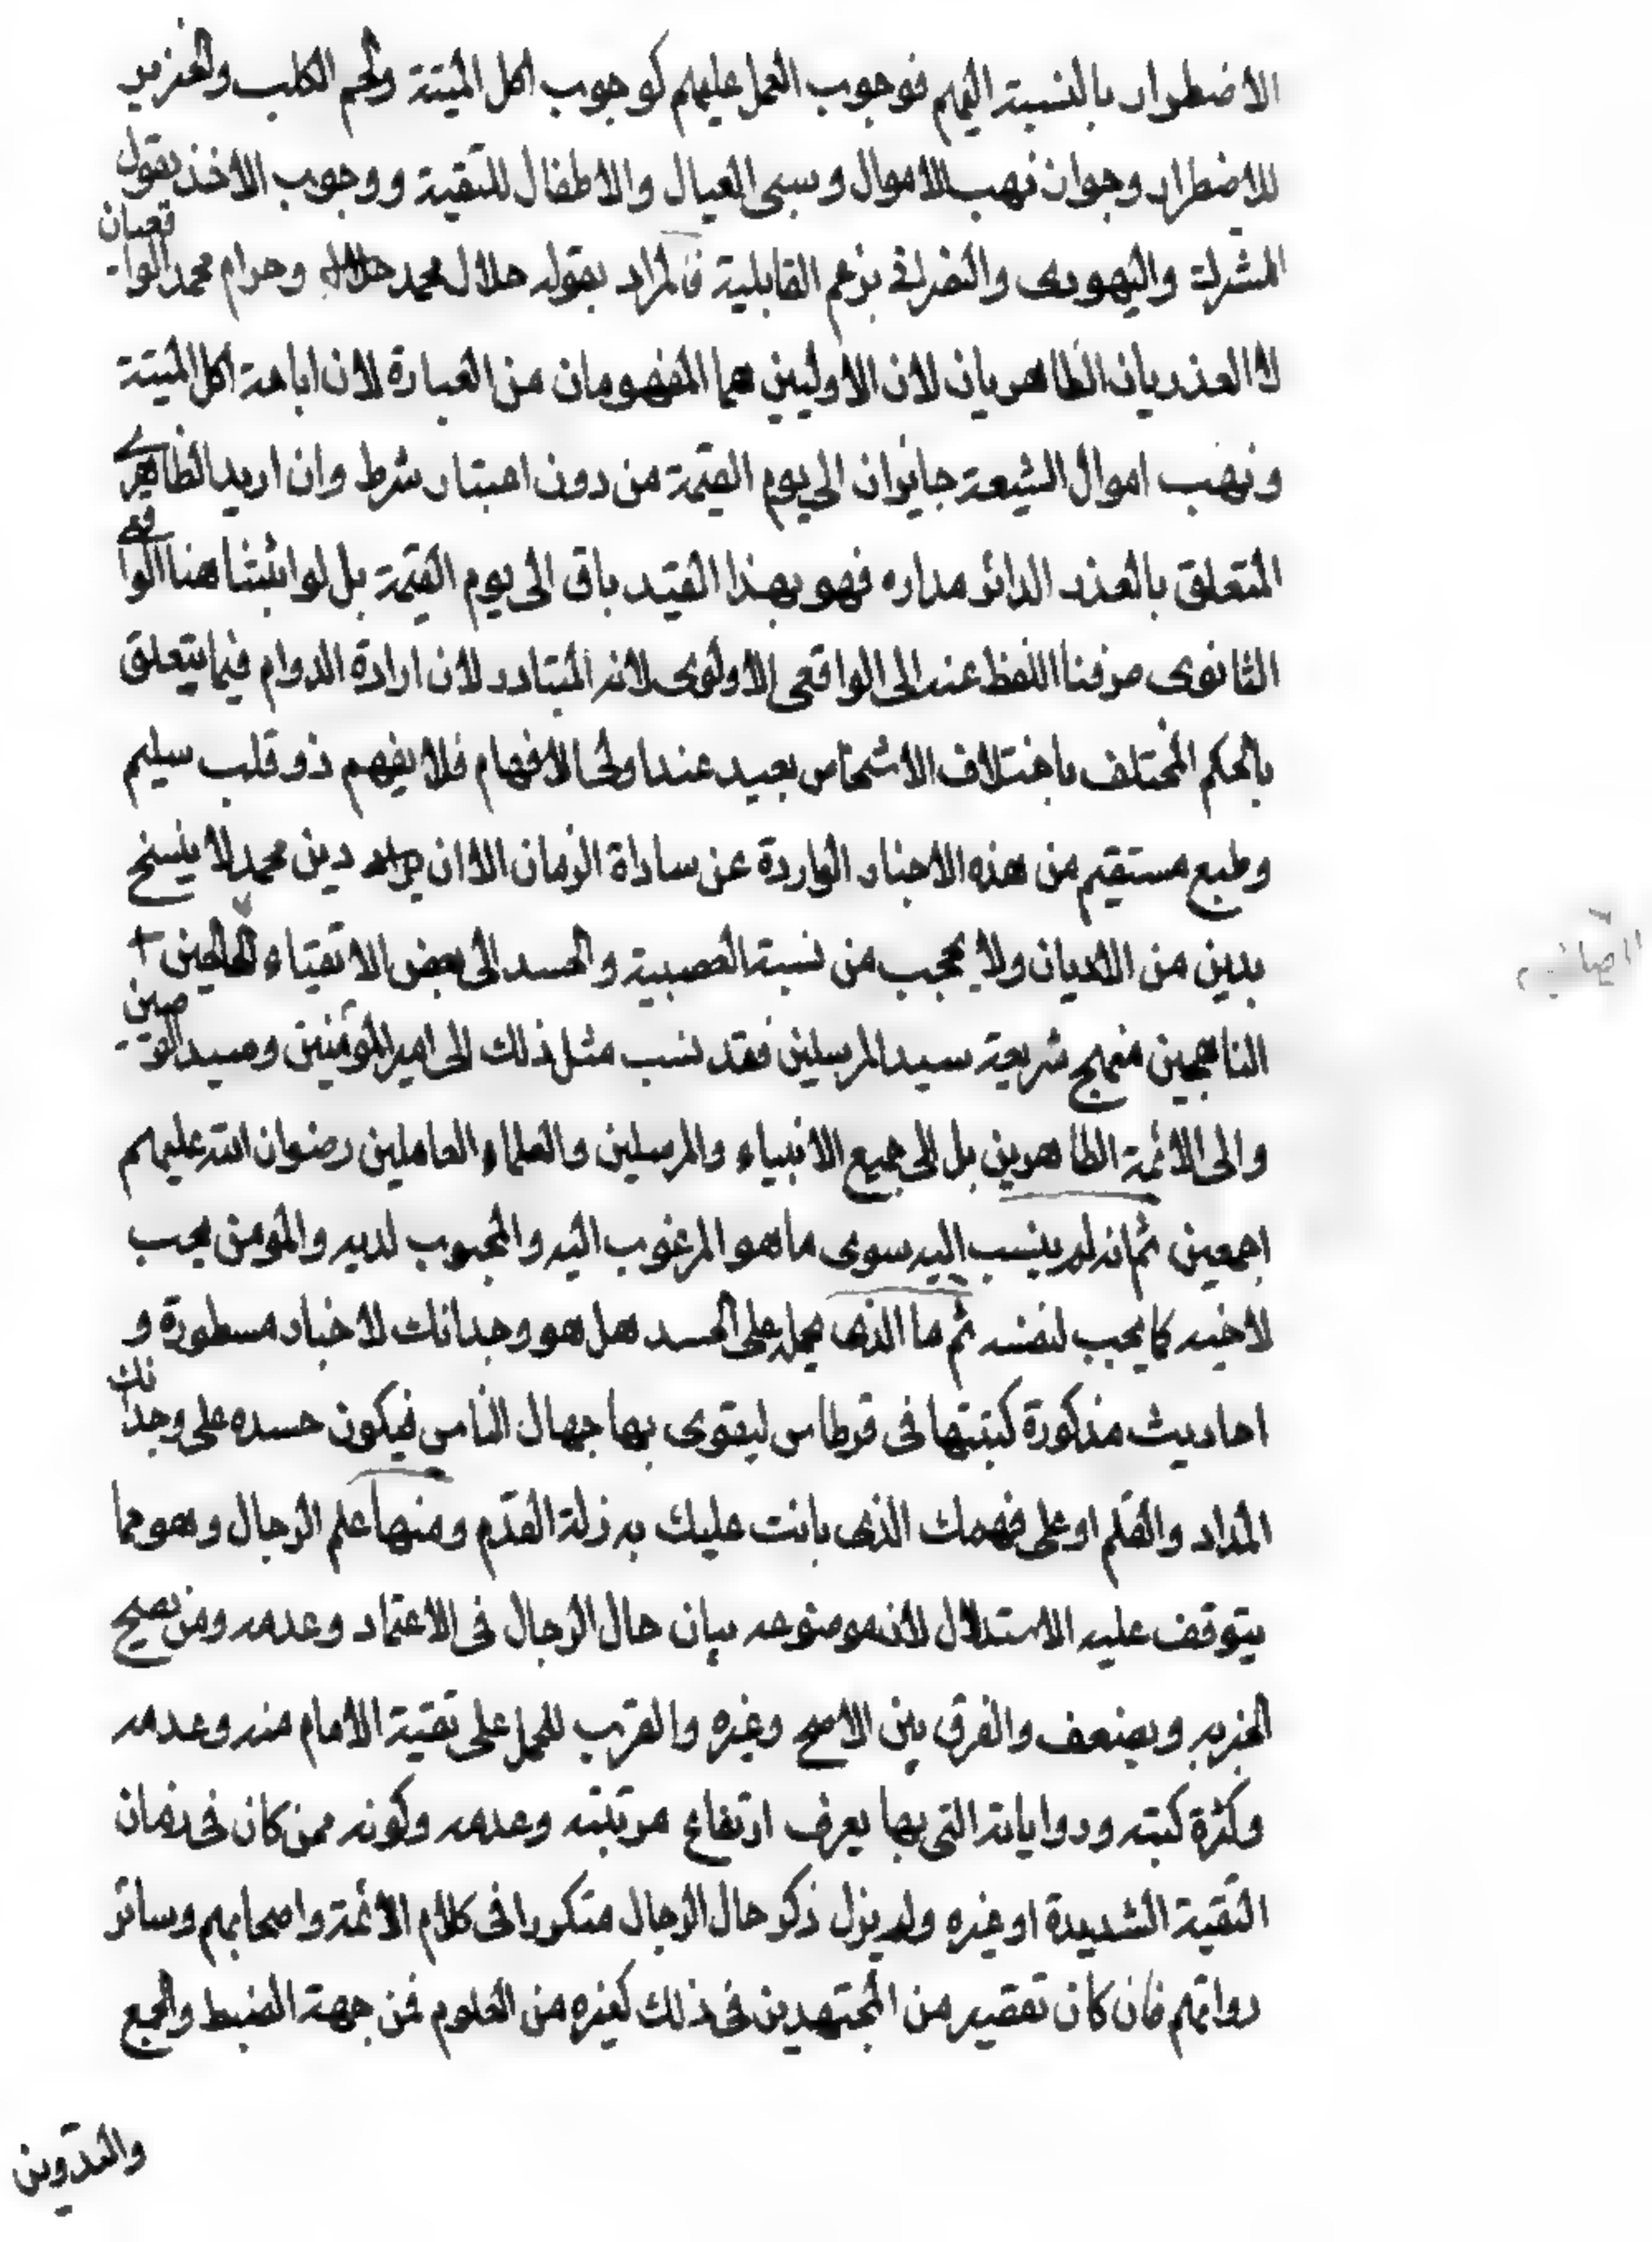 الاضطرار بالنسبة اليهم فوجوب العمل عليهم كوجوب اكل الميتة ولحم الكلب والخنزير
للاضطرار وجواز نهب الاموال وسبى العيال والاطفال للتقية ووجوب الاخذ بقول
المشرك واليهودى والنصرانى بزعم القابلية فالمراد بقوله حلال محمد حلال وحرام محمد الواقعيان
لا العذريان الظاهريان لان الاوليين هما المفهومان من العبارة لان اباحة اكل الميتة
ونهب اموال الشيعة جايزان الى يوم القيمة من دون اعتبار شرط وان اريد الظاهرى
المتعلق بالعذر الدائر مداره فهو بهذا القيد باق الى يوم القيمة بل لو اثبتنا هنا الواقعى
الثانوى صرفنا اللفظ عنه الى الواقعى الاولوى لانه المتبادر لان ارادة الدوام فيما يتعلق
بالحكم المختلف باختلاف الاشخاص بعيد عند اولى الافهام فلا يفهم ذو قلب سليم
وطبع مستقيم من هذه الاخبار الواردة عن ساداة الزمان الا ان دين محمد لا ينسخ
بدين من الاديان ولا عجب من نسبة العصبية والحسد الى بعض الاتقياء الصالحين
الناهجين منهج شريعة سيد المرسلين فقد نسب مثل ذلك الى امير المؤمنين وسيد الوصيين
والى الائمة الطاهرين بل الى جميع الانبياء والمرسلين والعلماء العاملين رضوان الله عليهم
اجمعين ثم انه لم ينسب اليه سوى ما هو المرغوب اليه والمحبوب لديه والمومن يحب
لاخيه كما يحب لنفسه ثم ما الذى يحمله على الحسد هل هو وجدانك لاخبار مسطورة و
احاديث مذكورة كتبتها فى قرطاس ليقوى بها جهال الناس فيكون حسده على وجدانك
المداد والقلم او على فهمك الذى بانت عليك به زلة القدم ومنها علم الرجال وهو مما
يتوقف عليه الاستدلال لانه موضوعه بيان حال الرجال فى الاعتماد وعدمه ومن يصح
الخبر به ويضعف والفرق بين الاصح وغيره والقرب للحمل على تقية الامام منه وعدمه
وكثرة كتبه ورواياته التى بها يعرف ارتفاع مرتبته وعدمه وكونه ممن كان فى زمان
التقية الشديدة او غيره ولم يزل ذكر حال الرجال متكررا فى كلام الائمة واصحابهم وسائر
رواتهم فان كان تقصير من المجتهدين فى ذلك كغيره من العلوم فمن جهة الضبط والجمع
والتدوين